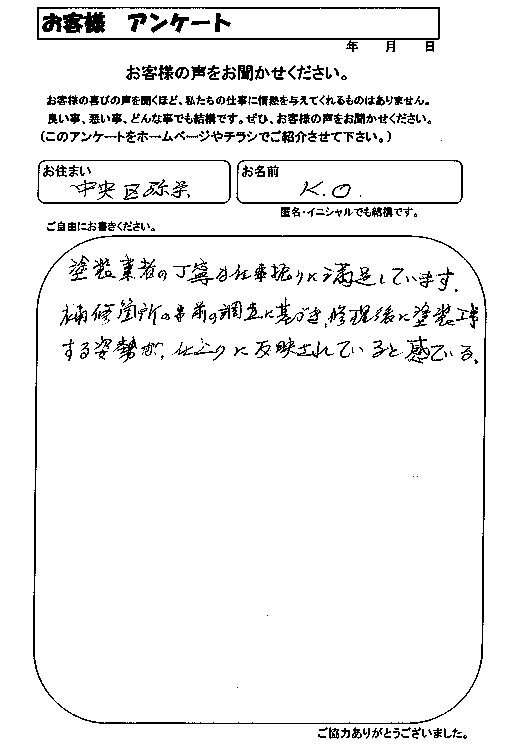 お客様 アンケート
年 月 日
お客様の声をお聞かせください。
お客様の喜びの声を聞くほど、私たちの仕事に情熱を与えてくれるものはありません。
良い事、悪い事、どんな事でも結構です。ぜひ、お客様の声をお聞かせください。
(このアンケートをホームページやチラシでご紹介させて下さい。)
お住まい
中央区弥栄
お名前
K.O.
匿名・イニシャルでも結構です。
ご自由にお書きください。
塗装業者の丁寧な仕事振りに満足しています.
補修箇所の事前の調査に基づき,修理後に塗装工事
する姿勢が,仕上りに反映されていると感ている.
ご協力ありがとうございました。